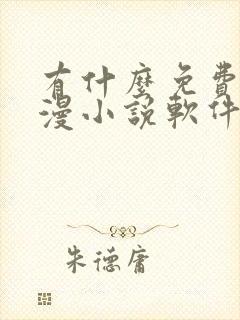 有什麼免費
漫小說軟件
朱德庸